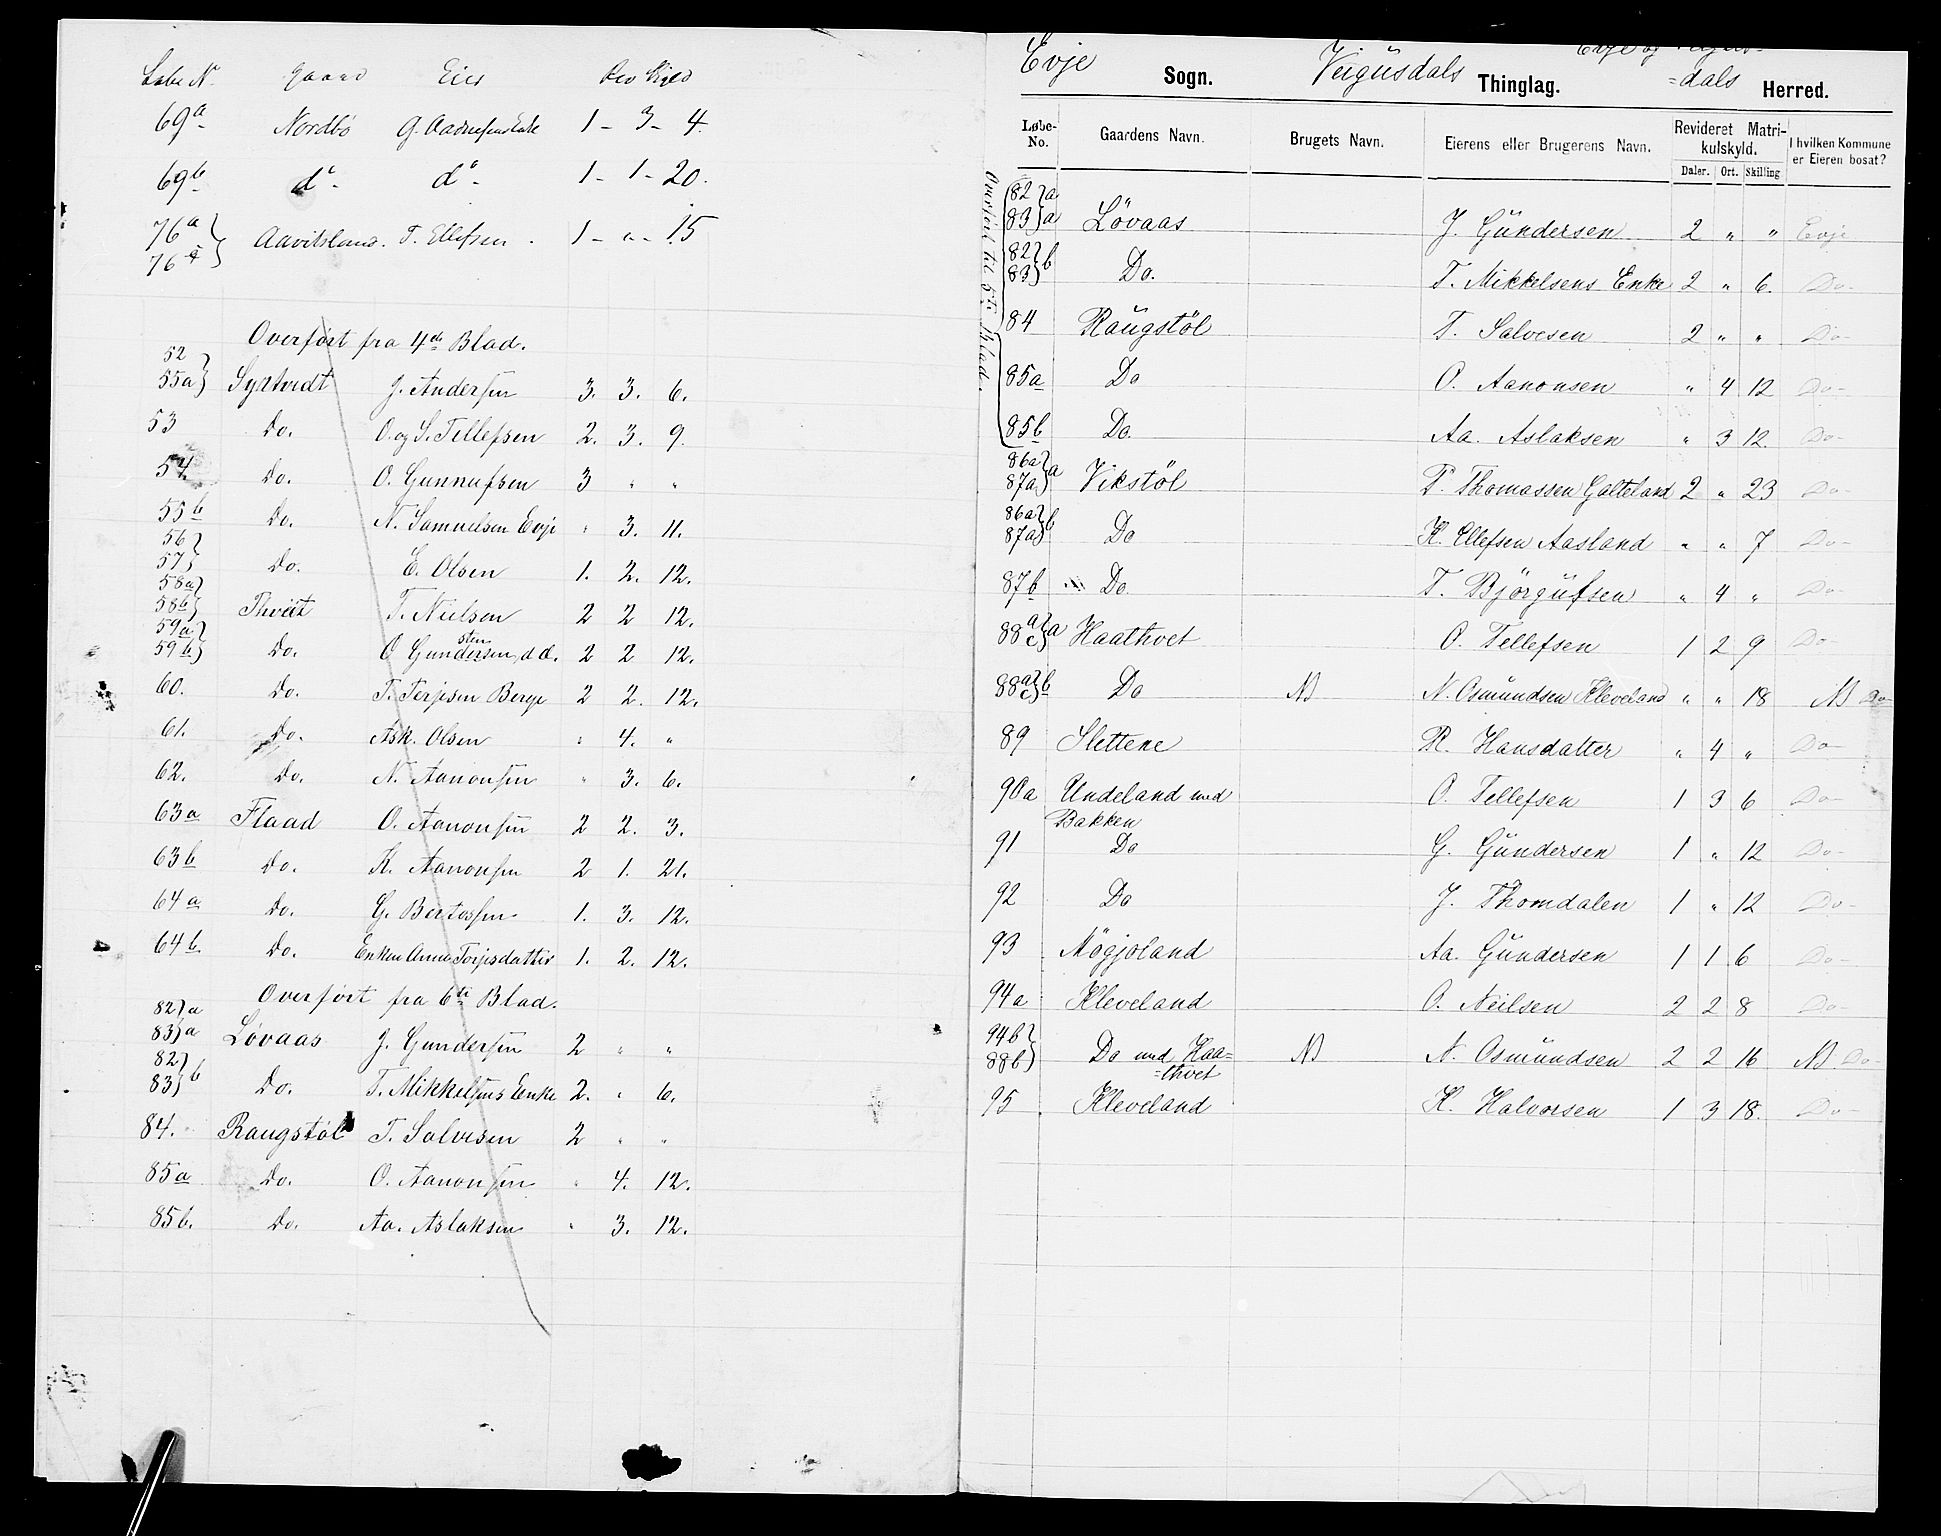 Løbe N. Gaard Eier Rev Skyld
69a Nordbö G. Aadnesens Enke 1 - 3 - 4.
69b do - do - 1 - 1 - 20.
76a
76 } Aavitsland. T. Ellefsen . 1 - " - 15
Overført fra 4de Blad.
52
55a } Syrtveit J. Andersen 3. 3. 6.
53 Do. O. og S. Tellefsen 2. 3. 9.
54. Do. O. Gunnufsen 3 " "
55b Do. N. Samuelsen Evje " 3. 11.
56
57 } Do. E. Olsen 1. 2. 12.
58a
58b } Thveit T. Nielsen 2 2 12.
59a
59b } Do. O Gundersen, d. Æ. 2 2 12.
60. Do. T. Terjesen Berge 2 2. 12.
61. Do. Ask. Olsen " 4. "
62. Do. N. Aanonsen " 3. 6.
63a Flaad O. Aanonsen 2 2. 3.
63b Do. K. Aanonsen 2 1. 21.
64a Do. G. Bentossen 1. 3. 12.
64b. Do. Enken Anne Torjesdatter 1. 2. 12.
Overført fra 6te Blad.
82
83 } a Løvaas J. Gundersen 2 " "
82
83 } b Do. T. Mikkelsens Enke 2. " 6.
84. Raugstøl T. Salvesen 2 " "
85a Do. O. Aanonsen " 4. 12.
85b. Do. Aa. Aslaksen " 3. 12.
Evje Sogn. Veigusdals Thinglag. Evje og Veigus-
=dals Herred.
Løbe-No. Gaardens Navn. Brugets Navn. Eierens eller Brugerens Navn. Revideret Matri-kulskyld. I hvilken Kommune er Eieren bosat?
Daler. Ort. Skilling
Overført til 5te Blad.
82 } a
83 } a Lövaas J. Gundersen 2 " " Evje
82
83 } b Do. T. Mikkelsens Enke 2 " 6. Do-
84 Raugstöl T. Salvesen 2 " " Do-
85a Do O. Aanonsen " 4 12 Do-
85b Do. Aa. Aslaksen " 3 12. Do-
86a
87a } a Vikstöl T. Thomassen Galteland 2 " 23 Do-
86a
87a } b Do K. Ellefsen Aasland " " 7 Do-
87b Do T. Björgufsen " 4 " Do-
88 a c } a Haathvet O. Tellefsen 1 2 9 Do
88 a c } b Do NB N. Osmundsen Kleveland " " 18 NB Do-
89 Slettene R. Hansdatter " 4 " Do-
90a Undeland med
Bakken O. Tellefsen 1 3 6 Do-
91 Do G. Gundersen 1 " 12 Do-
92 Do J. Thomdalen 1 " 12 Do-
93 Högjoland Aa. Gundersen 1 1 6 Do-
94a Kleveland O. Neilsen 2 2 8 Do-
94b
88b } Do med Haa=
=thvet NB N. Osmundsen 2 2 16 NB Do-
95 Kleveland K. Halvorsen 1 3 18. Do-